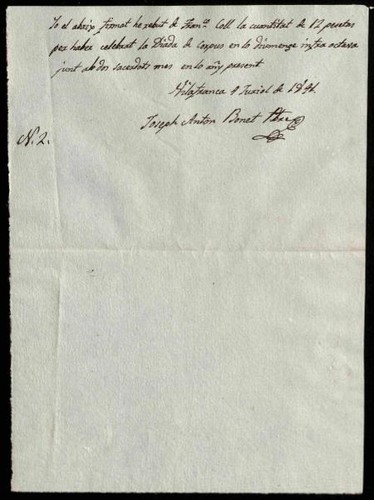 Jo el abaix firmat he rebut de Franco. Coll la cuantitat de 12 pesetas
per haber celebrat la Diada de Corpus en lo diumenge infra octava
junt ab dos sacerdots mes en lo añy present
Vilafranca Juriol de 1841.
Joseph Anton Bonet Pbre
N. 2.